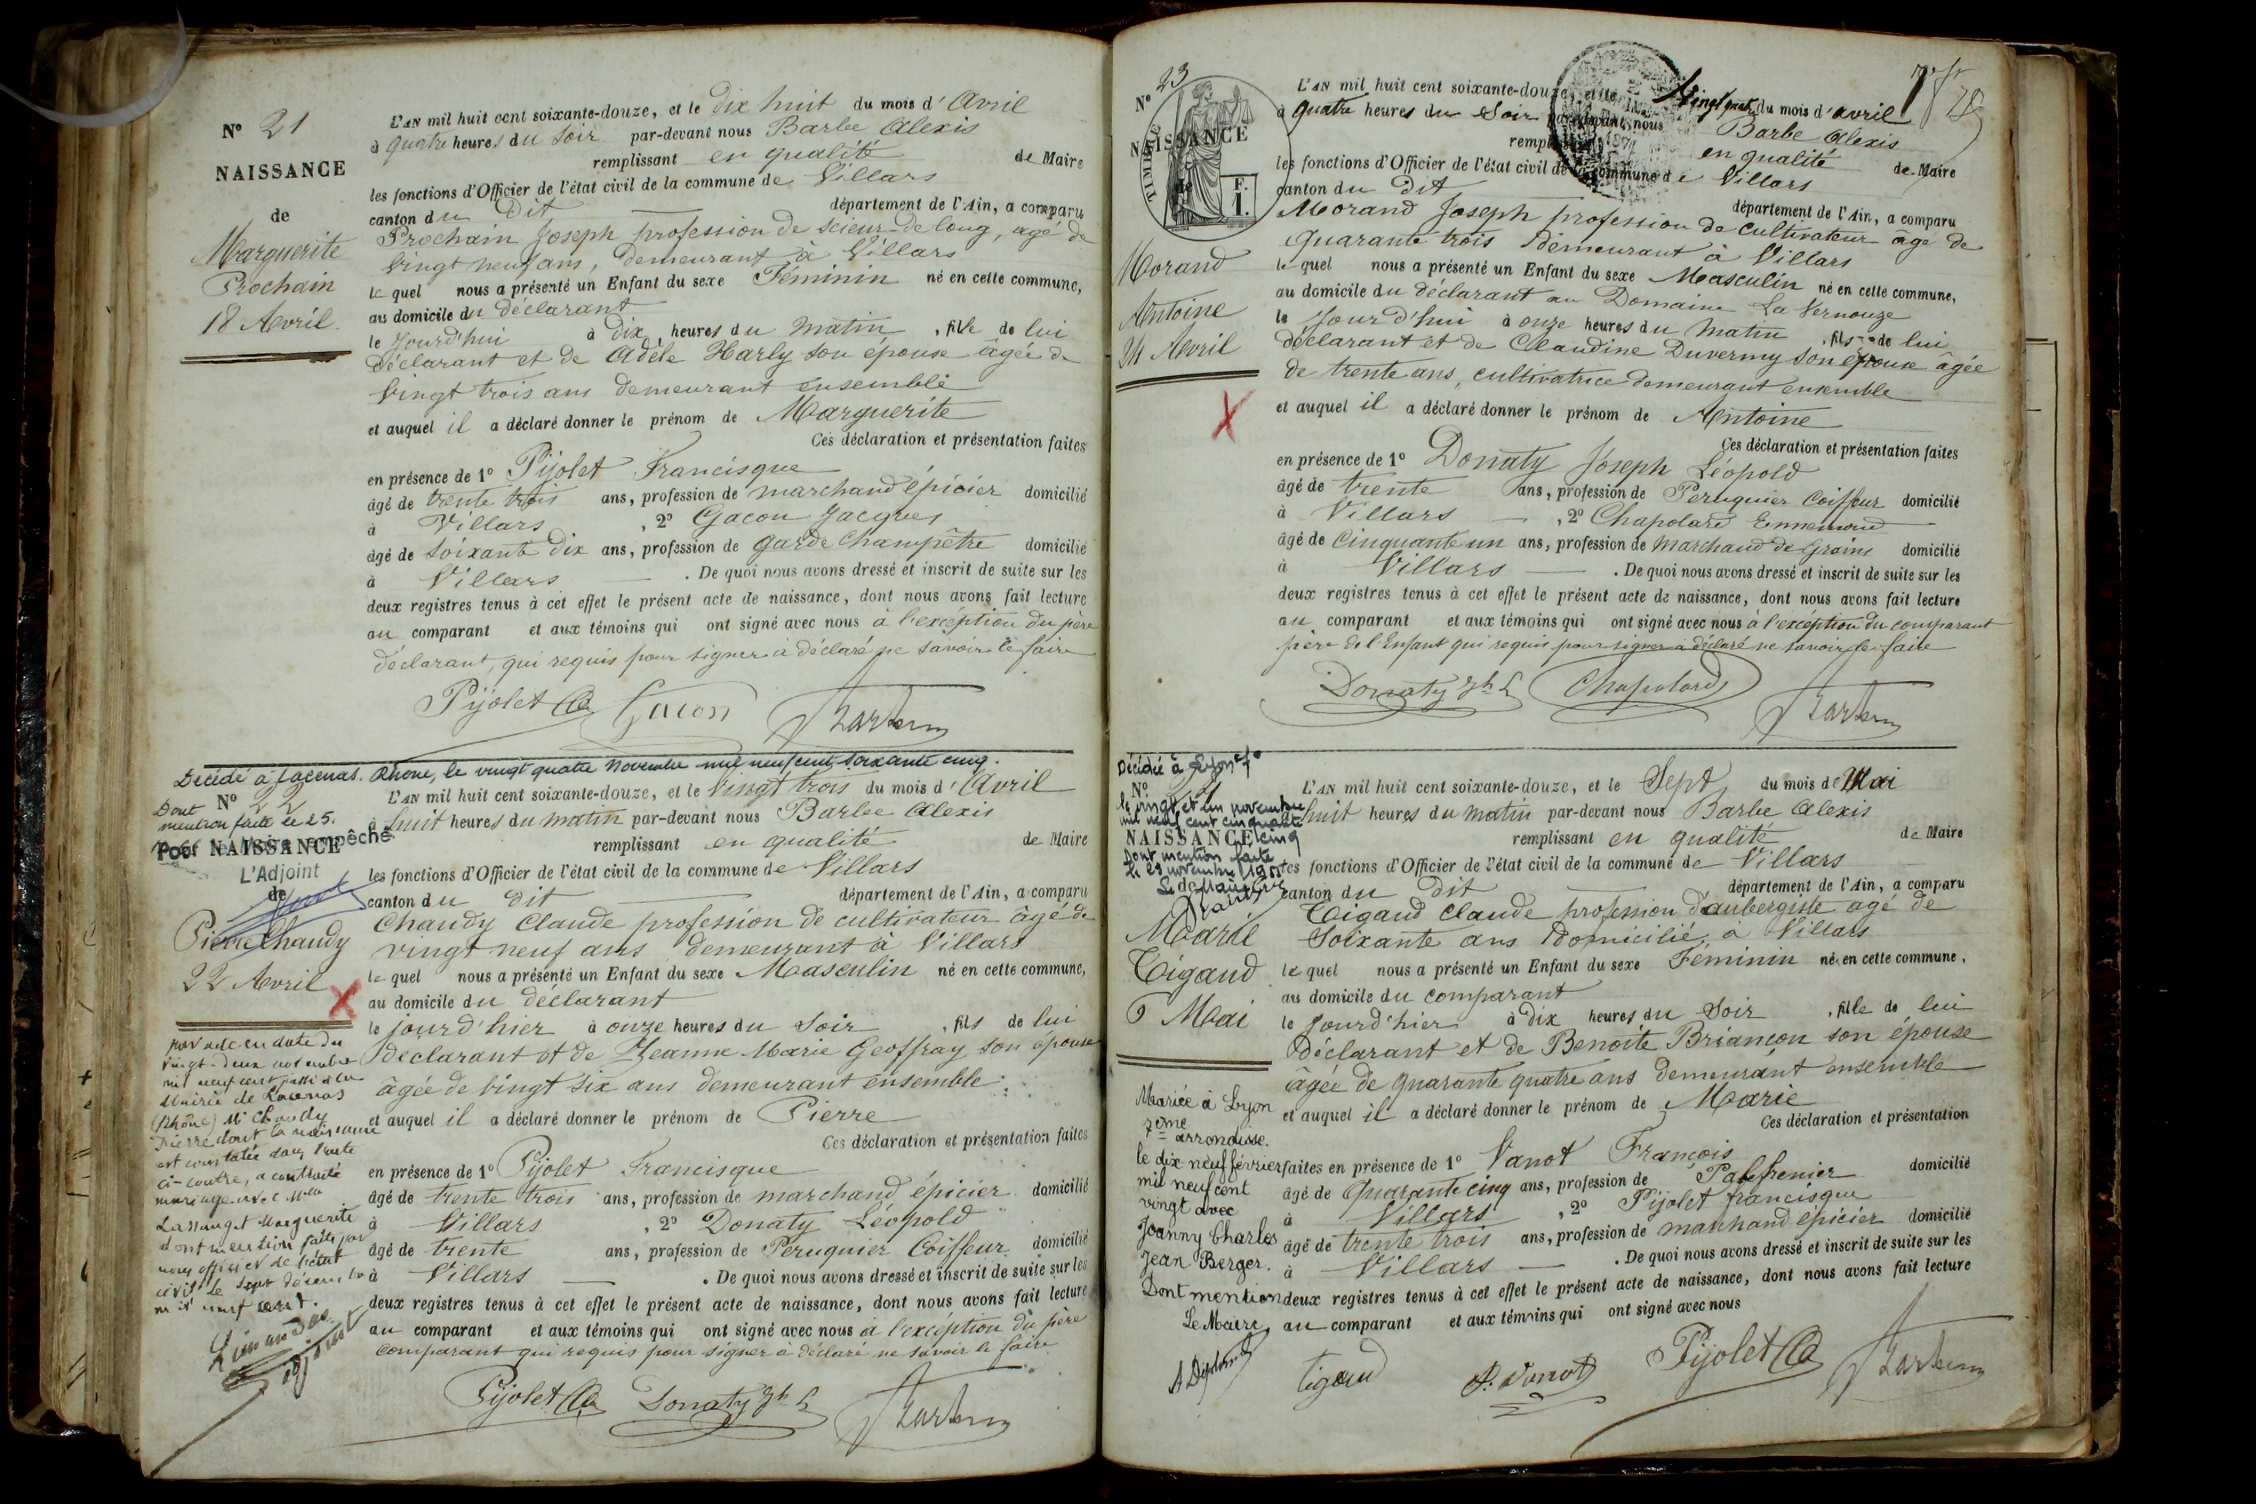 N° 21
NAISSANCE
de
Marguerite
Prochain
18 Avril
L'AN mil huit cent soixante-douze, et le dix huit du mois d'Avril
à quatre heures du Soir par-devant nous Barbe Alexis
remplissant en qualité de Maire
les fonctions d'Officier de l'état civil de la commune de Villars
canton du Dit département de l'Ain, a comparu
Prochain Joseph profession de scieur de long, âgé de
vingt neuf ans, demeurant à Villars
le quel nous a présenté un Enfant du sexe Féminin né en cette commune,
au domicile du déclarant
le jourd'hui à dix heures du matin, fille de lui
déclarant et de Adèle Harly son épouse âgée de
vingt trois ans demeurant ensemble
et auquel il a déclaré donner le prénom de Marguerite
Ces déclaration et présentation faites
en présence de 1° Pijolet Francisque
âgé de trente trois ans, profession de marchand épicier domicilié
à Villars, 2° Gacon Jacques
âgé de soixante dix ans, profession de garde champêtre domicilié
à Villars. De quoi nous avons dressé et inscrit de suite sur les
deux registres tenus à cet effet le présent acte de naissance, dont nous avons fait lecture
au comparant et aux témoins qui ont signé avec nous à l'exception du père
déclarant, qui requis pour signer à déclaré ne savoir le faire
Pijolet Gacon
Décédé à Lacenas. Rhône, le vingt quatre Novembre mil neuf cent soixante cinq.
Dont
mention faite le 25.
Pour le Maire empêché
L'Adjoint
N° 22
NAISSANCE
de
Pierre Chaudy
22 Avril
par acte en date du
vingt-deux novembre
mil neuf cent passé à la
Mairie de Lacenas
(Rhône) Mr Chaudy
Pierre dont la naissance
est constatée dans l'acte
ci-contre, a contracté
mariage avec Mlle
Marguerite
dont mention faite par
nous officier de l'état
civil le sept décembre
mil neuf cent.
L'AN mil huit cent soixante-douze, et le vingt trois du mois d'Avril
à huit heures du matin par-devant nous Barbe Alexis
remplissant en qualité de Maire
les fonctions d'Officier de l'état civil de la commune de Villars
canton du dit département de l'Ain, a comparu
Chaudy Claude profession de cultivateur âgé de
vingt neuf ans demeurant à Villars
le quel nous a présenté un Enfant du sexe Masculin né en cette commune,
au domicile du déclarant
le jourd'hier à onze heures du Soir, fils de lui
déclarant et de Jeanne Marie Geoffray son épouse
âgée de vingt six ans demeurant ensemble
et auquel il a déclaré donner le prénom de Pierre
Ces déclaration et présentation faites
en présence de 1° Pijolet Francisque
âgé de trente trois ans, profession de marchand épicier domicilié
à Villars, 2° Donaty Léopold
âgé de trente ans, profession de Peruquier Coiffeur domicilié
à Villars. De quoi nous avons dressé et inscrit de suite sur les
deux registres tenus à cet effet le présent acte de naissance, dont nous avons fait lecture
au comparant et aux témoins qui ont signé avec nous à l'exception du père
comparant qui requis pour signer à déclaré ne savoir le faire
Pijolet Donaty Jh L
N° 23
NAISSANCE
de
TIMBRE
F.
1.
Morand
Antoine
24 Avril
L'AN mil huit cent soixante-douze, et le vingt quatre du mois d'avril
à quatre heures du Soir par-devant nous Barbe Alexis
remplissant en qualité de Maire
les fonctions d'Officier de l'état civil de la commune de Villars
canton du Dit département de l'Ain, a comparu
Morand Joseph profession de cultivateur âgé de
quarante trois demeurant à Villars
le quel nous a présenté un Enfant du sexe Masculin né en cette commune,
au domicile du déclarant au Domaine La Vernouze
le jourd'hui à onze heures du matin, fils de lui
déclarant et de Claudine Duvernay son épouse âgée
de trente ans, cultivatrice demeurant ensemble
et auquel il a déclaré donner le prénom de Antoine
Ces déclaration et présentation faites
en présence de 1° Donaty Joseph Léopold
âgé de trente ans, profession de Peruquier Coiffeur domicilié
à Villars, 2° Chapolard Ennemond
âgé de cinquante un ans, profession de marchand de Grains domicilié
à Villars. De quoi nous avons dressé et inscrit de suite sur les
deux registres tenus à cet effet le présent acte de naissance, dont nous avons fait lecture
au comparant et aux témoins qui ont signé avec nous à l'exception du comparant
père de l'Enfant qui requis pour signer a déclaré ne savoir le faire
Donaty Jh L Chapolard
Décédée à Lyon
le vingt et un novembre
mil neuf cent cinquante
cinq
Dont mention faite
le 29 novembre 1955
N°
NAISSANCE
Marie
Tigaud
6 Mai
Mariée à Lyon
7ème arrondisse.
le dix neuf février
mil neuf cent
vingt avec
Joanny Charles
Jean Berger.
Dont mention
Le Maire,
L'AN mil huit cent soixante-douze, et le Sept du mois de Mai
à huit heures du matin par-devant nous Barbe Alexis
remplissant en qualité de Maire
les fonctions d'Officier de l'état civil de la commune de Villars
canton du Dit département de l'Ain, a comparu
Tigaud Claude profession d'aubergiste agé de
Soixante ans domicilié à Villars
le quel nous a présenté un Enfant du sexe Féminin né en cette commune,
au domicile du comparant
le jourd'hier à Dix heures du Soir, fille de lui
déclarant et de Benoite Briançon son épouse
âgée de quarante quatre ans demeurant ensemble
et auquel il a déclaré donner le prénom de Marie
Ces déclaration et présentation
faites en présence de 1° Vanot François
âgé de Quarante cinq ans, profession de Palefrenier domicilié
à Villars, 2° Pijolet francisque
âgé de trente trois ans, profession de marchand épicier domicilié
à Villars. De quoi nous avons dressé et inscrit de suite sur les
deux registres tenus à cet effet le présent acte de naissance, dont nous avons fait lecture
au comparant et aux témoins qui ont signé avec nous
Tigaud Vanot Pijolet